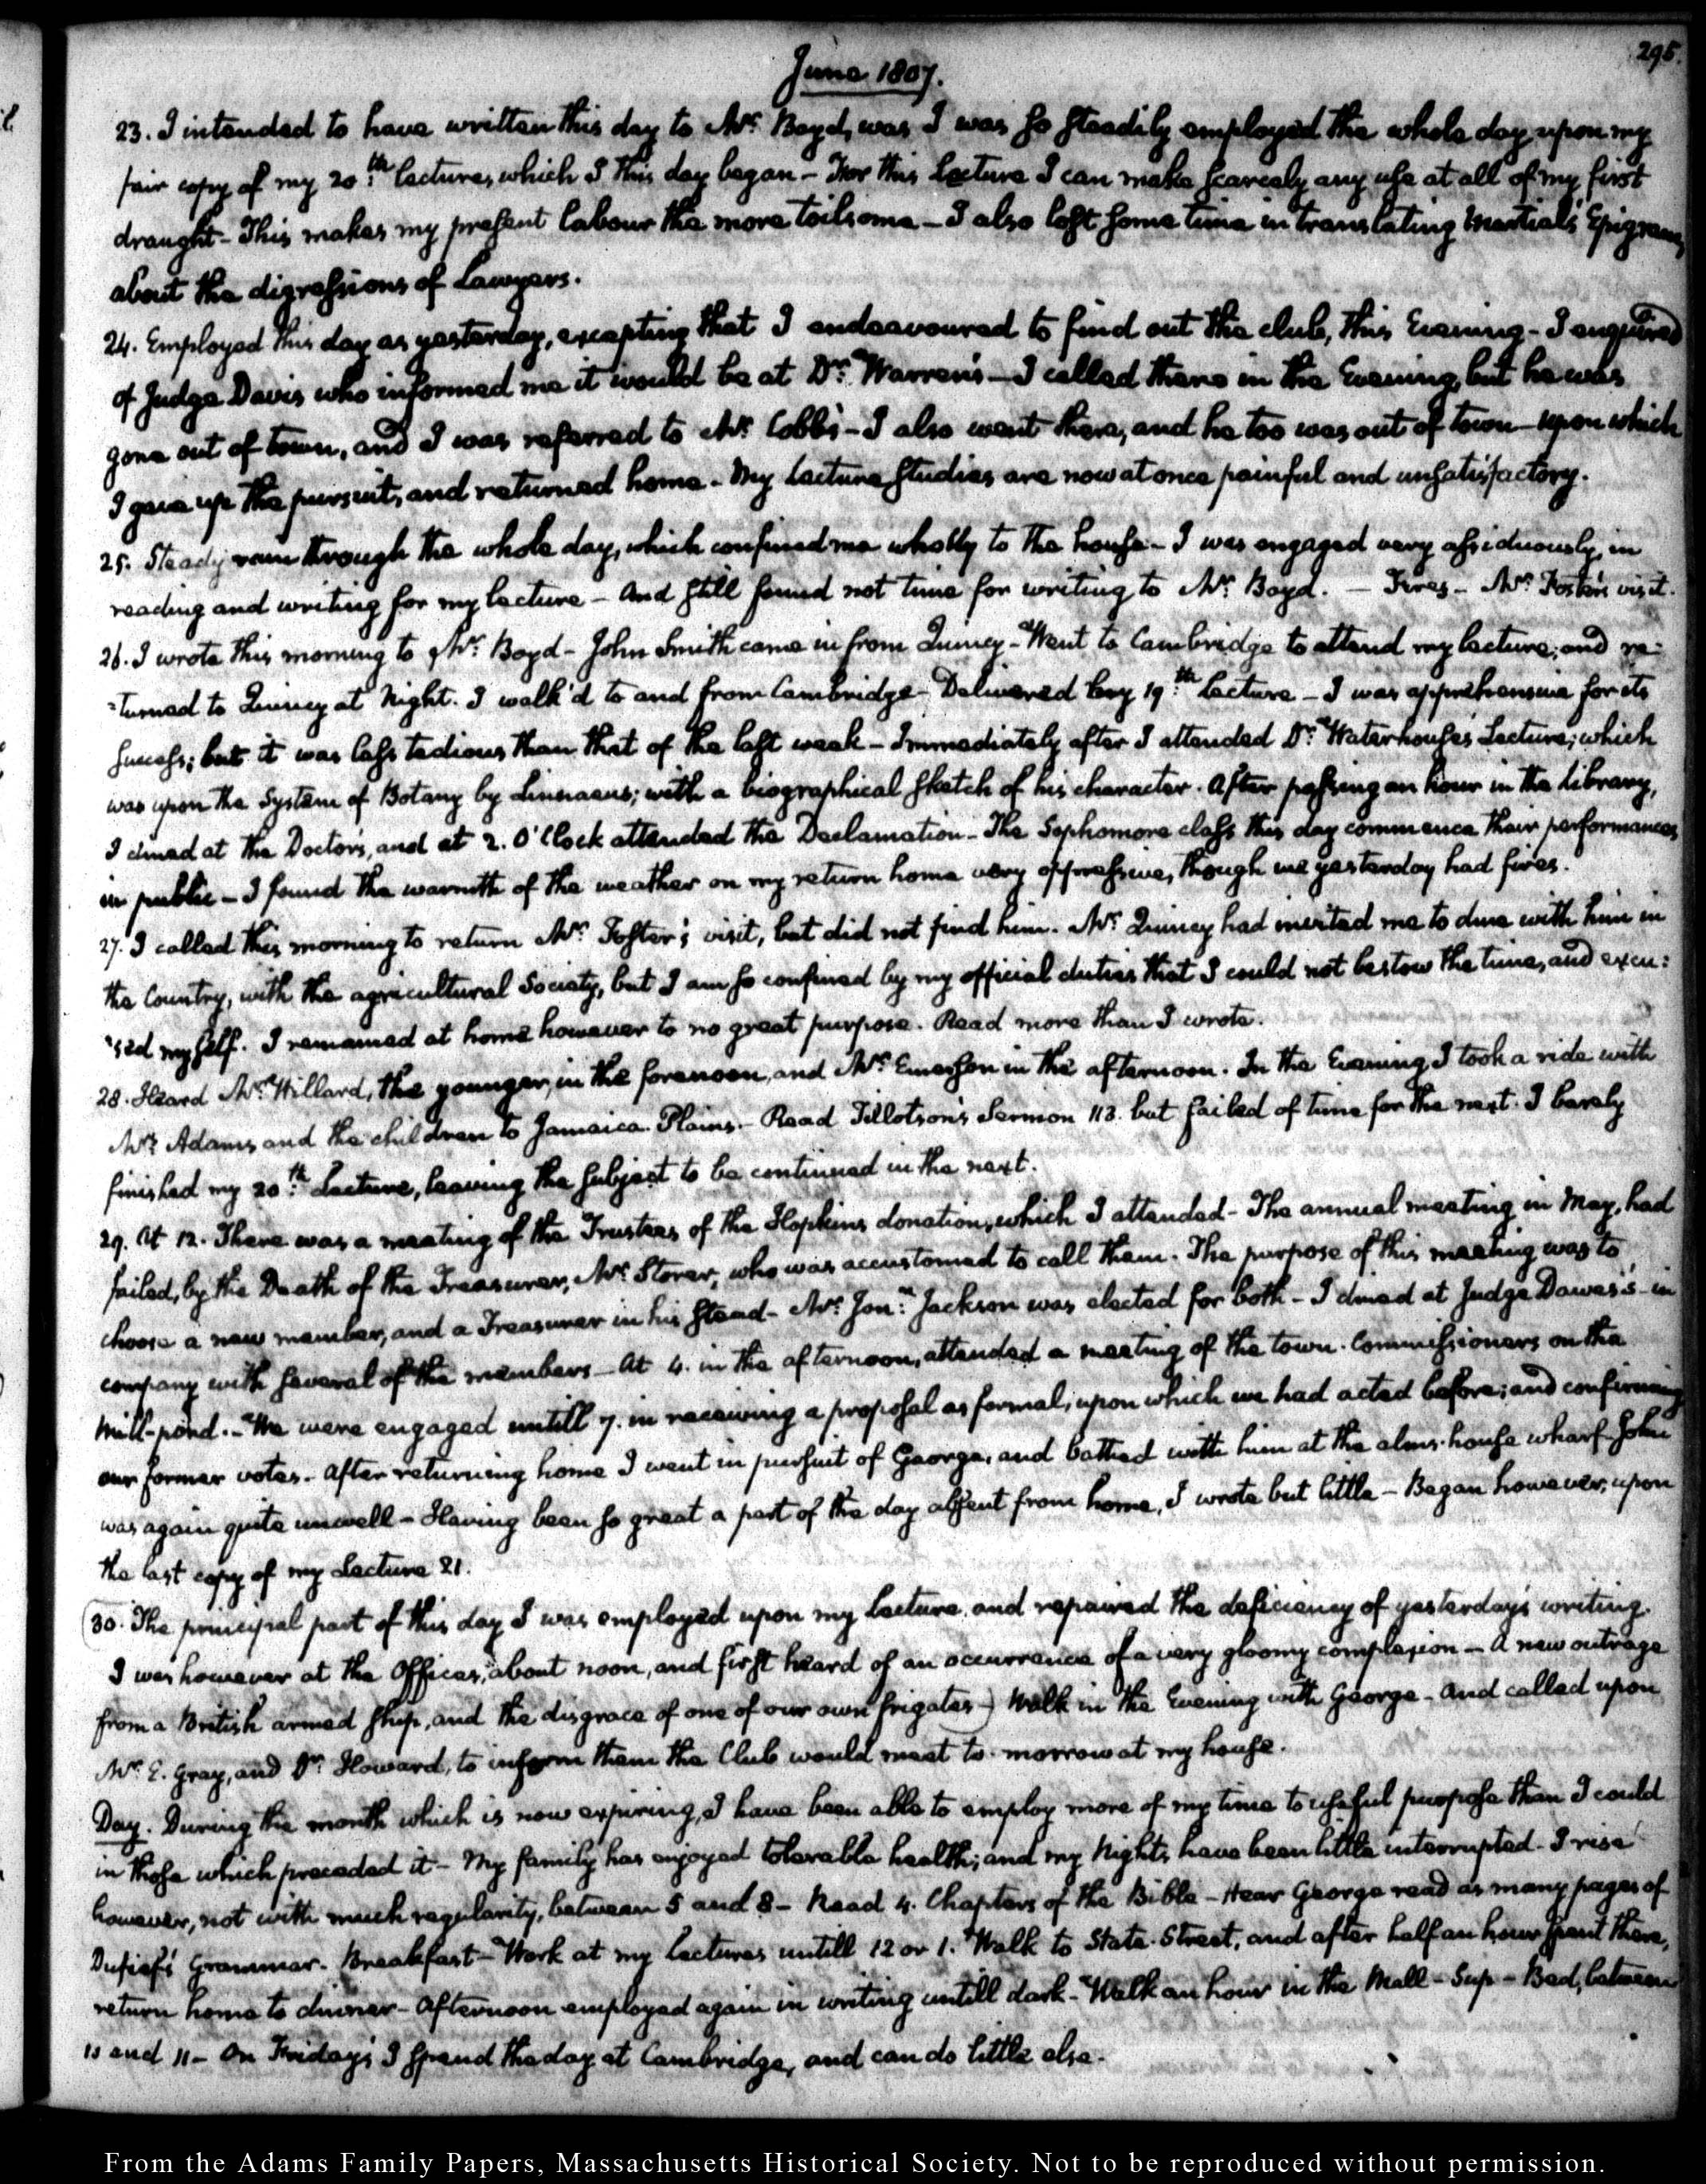 295.
June 1807.
23. I intended to have written this day to Mr. Boyd, was I was so steadily employed the whole day upon my
fair copy of my 20th. lecture, which I this day began — For this Lecture I can make scarcely any use at all of my first
draught — This makes my present labour the more toilsome — I also lost some time in translating Martial's Epigram,
about the digressions of Lawyers.
24. Employed this day as yesterday, excepting that I endeavoured to find out the club, this Evening — I enquired
of Judge Davis who informed me it would be at Dr. Warren's — I called there in the Evening, but he was
gone out of town, and I was referred to Mr. Cobb's — I also went there, and he too was out of town — upon which
I gave up the pursuit, and returned home — My Lecture studies are now at once painful and unsatisfactory.
25. Steady rain through the whole day, which confined me wholly to the house — I was engaged very assiduously, in
reading and writing for my lecture — And still found not time for writing to Mr. Boyd. — Fires — Mr. Foster's visit.
26. I wrote this morning to Mr. Boyd — John Smith came in from Quincy — Went to Cambridge to attend my lecture; and re-
-turned to Quincy at Night. I walk'd to and from Cambridge — Delivered my 19th. Lecture — I was apprehensive for its
success; but it was less tedious than that of the last week — Immediately after I attended Dr. Waterhouse's Lecture; which
was upon the System of Botany by Linnaeus; with a biographical sketch of his character. After passing an hour in the Library,
I dined at the Doctor's, and at 2. O'Clock attended the Declamation — The Sophomore class this day commence their performances
in public — I found the warmth of the weather on my return home very oppressive, though we yesterday had fires.
27. I called this morning to return Mr. Foster's visit, but did not find him. Mr. Quincy had invited me to dine with him in
the Country, with the agricultural Society, but I am so confined by my official duties that I could not bestow the time, and excu:
:sed myself. I remained at home however to no great purpose. Read more than I wrote.
28. Heard Mr. Willard, the younger, in the forenoon, and Mr. Emerson in the afternoon. In the Evening I took a ride with
Mrs. Adams and the children to Jamaica Plains. — Read Tillotson's Sermon 113. but failed of time for the next. I barely
finished my 20th. Lecture, leaving the subject to be continued in the next.
29. At 12. There was a meeting of the Trustees of the Hopkins donation, which I attended — The annual meeting in May, had
failed, by the Death of the Treasurer, Mr. Storer, who was accustomed to call them. The purpose of this meeting was to
choose a new member, and a Treasurer in his stead — Mr. Jonn. Jackson was elected for both — I dined at Judge Dawes's — in
company with several of the members — At 4. in the afternoon, attended a meeting of the town. Commissioners on the
Mill-pond. — We were engaged untill 7. in receiving a proposal as formal, upon which we had acted before; and confirming
our former votes. After returning home I went in pursuit of George, and bathed with him at the alms-house wharf — John
was again quite unwell — Having been so great a part of the day absent from home, I wrote but little — Began however, upon
the last copy of my Lecture 21.
30. The principal part of this day I was employed upon my Lecture, and repaired the deficiency of yesterday's writing.
I was however at the Offices, about noon, and first heard of an occurrence of a very gloomy complexion — A new outrage
from a British armed ship, and the disgrace of one of our own frigates) Walk in the Evening with George — And called upon
Mr. E. Gray, and Dr. Howard, to inform them the Club would meet to-morrow at my house.
Day. During the month which is now expiring, I have been able to employ more of my time to useful purpose than I could
in those which preceded it — My family has enjoyed tolerable health; and my Nights have been little interrupted. I rise
however, not with much regularity, between 5 and 8 — Read 4. Chapters of the Bible — Hear George read as many pages of
Dufief's Grammar. Breakfast — Work at my Lectures untill 12 or 1. Walk to State-Street, and after half an hour spent there,
return home to dinner — Afternoon employed again in writing untill dark — Walk an hour in the Mall — Sup — Bed, between
10 and 11 — On Friday's I spend the day at Cambridge, and can do little else.
From the Adams Family Papers, Massachusetts Historical Society. Not to be reproduced without permission.